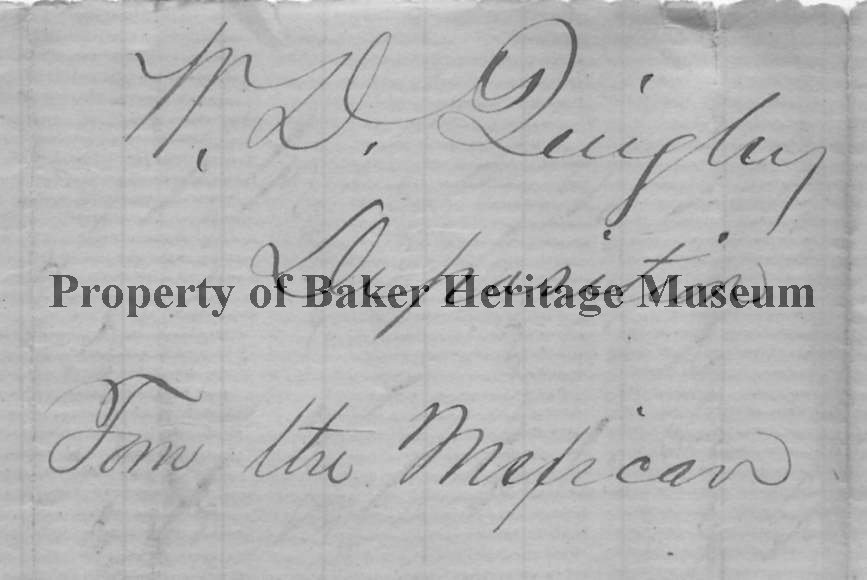 W. D. Quigley
Deposition
Property of Baker Heritage Museum
Tom the Mexican